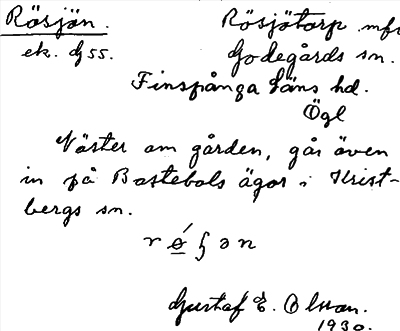 Rösjön. Rösjötorp mfl
ek. dj 55. Godegårds sn.
Finspånga läns hd.
Ögl
Väster om gården, går även
in på Bastebols ägor i Krist-
bergs sn.
Gustaf E. Olsson.
1930.